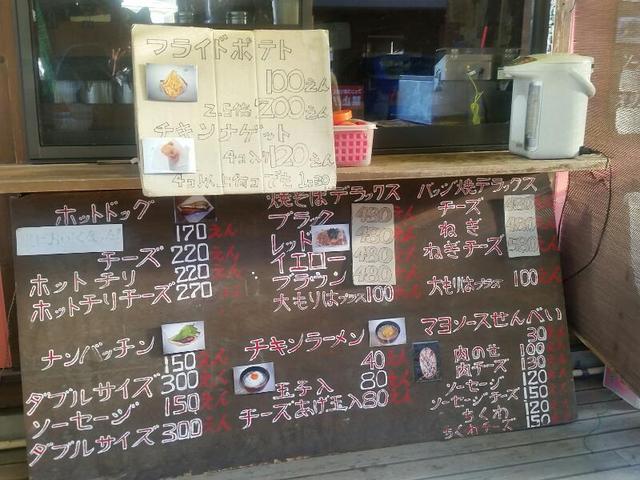 フライドポテト
100えん
2.5倍 200えん
チキンナゲット
4コ入り120えん
4コ以上何コでも1コ30
ホットドッグ
170えん
チーズ 220えん
ホットチリ 220
ホットチリチーズ 270
焼そばデラックス
ブラック 430えん
レッド 430
イエロー 430
ブラウン 430
大もりはプラス100えん
バッジ焼デラックス
チーズ 430
ねぎ 430
ねぎチーズ 530
大もりはプラス 100えん
ナンバッチン
150えん
ダブルサイズ 300えん
ソーセージ 150えん
ダブルサイズ 300えん
チキンラーメン
40えん
玉子入 80えん
チーズあげ玉入80えん
マヨソースせんべい
30えん
肉のせ 100
肉チーズ 130
ソーセージ 120
ソーセージチーズ 150
ちくわ 120
ちくわチーズ 150